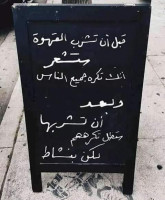 قبل أن تشرب القهوة
ستشعر
أنك تكره جميع الناس
وبعد
أن تشربها
ستظل تكرههم
لكن بنشاط